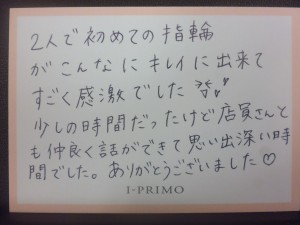 2人で初めての指輪
がこんなにキレイに出来て
すごく感激でした
少しの時間だったけど店員さんと
も仲良く話ができて思い出深い時
間でした。ありがとうございました♡
I-PRIMO